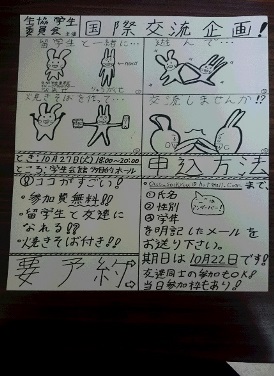 生協学生委員会主催 国際交流企画!
留学生と一緒に…
遊んで…
焼きそばを作って…
交流しませんか!?
とき:10月27日(火)18:00~20:00
ところ:学生会館 多目的ホール
◎ココがすごい!
・参加費無料!!
・留学生と友達になれる!!
・焼きそば付き!!
要予約
申込方法
まで、
①氏名
②性別
③学年
を明記したメールを
お送り下さい。
期日は10月22日です!
友達同士の参加もOK!
当日参加枠もあり!